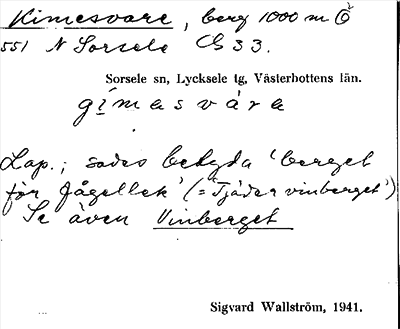 Kimesvare, berg 1000 m Ö
551 N Sorsele C 33.
Sorsele sn, Lycksele tg, Västerbottens län.
gìmasvára
Lap.; sades betyda 'berget
för fågellek' (='Tjädervinberget')
Se även Vinberget
Sigvard Wallström, 1941.